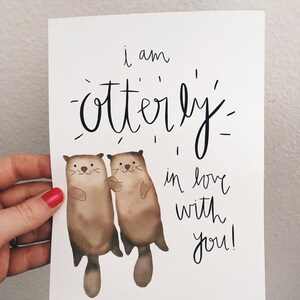 i am
otterly
in love
with
you!